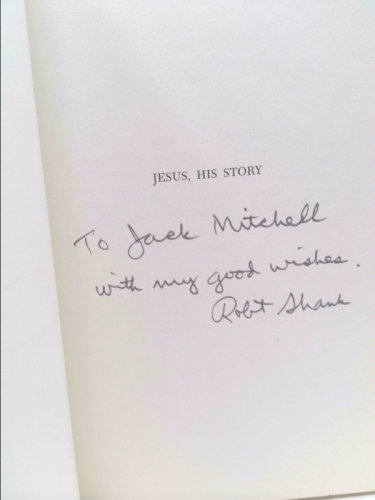 JESUS, HIS STORY
To Jack Mitchell
with my good wishes.
Robt Shank